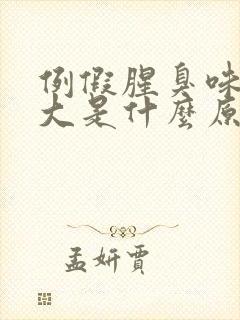 例假腥臭味
大是什麼原
孟妍賈